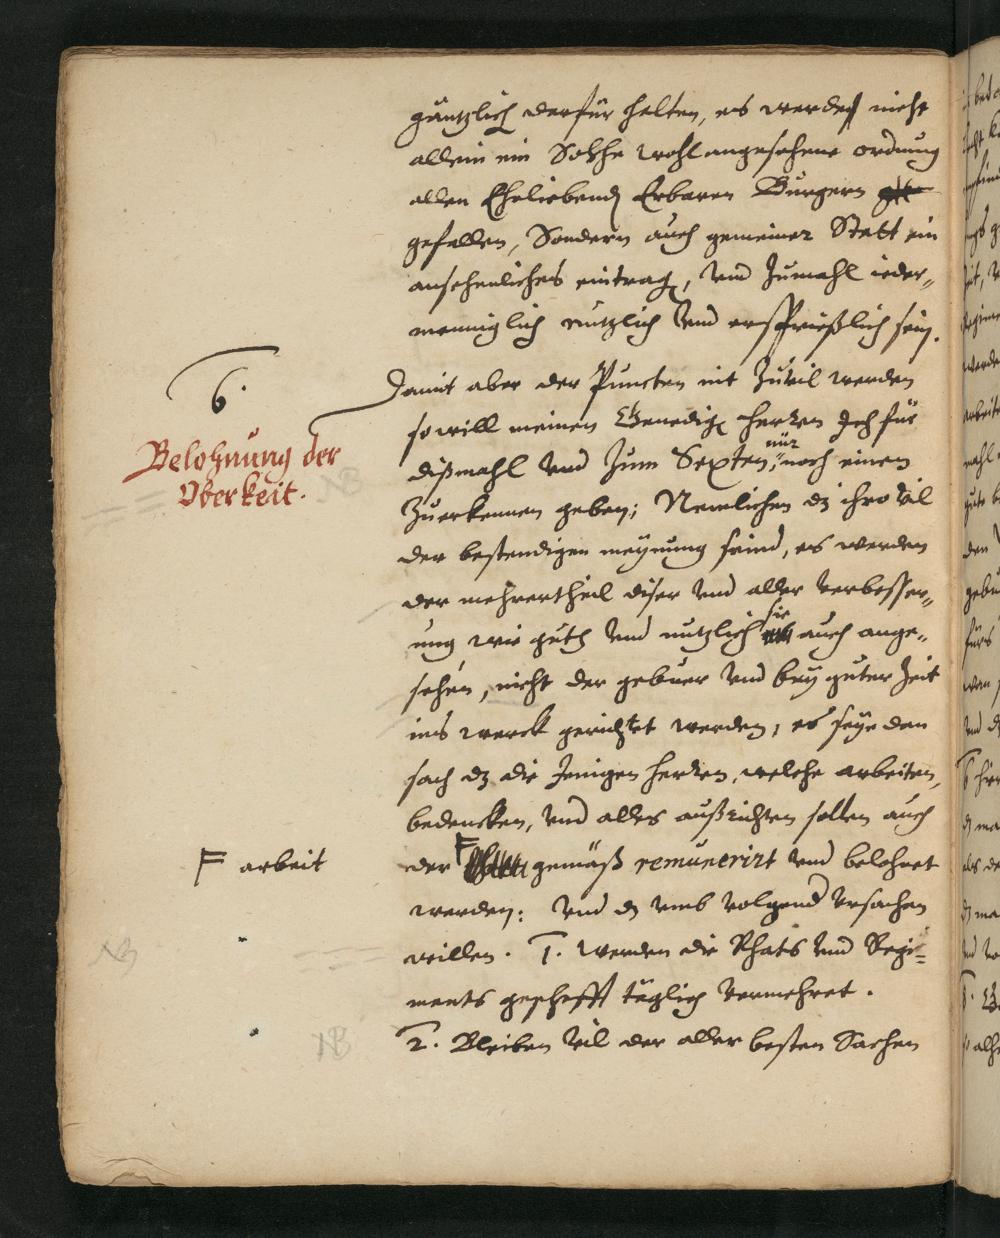 gäntzlich derfür halten, es werde nicht
allein ein Solche wohl angesehene ordnung
allen Ehrliebend Erbaren Burgern
gefallen, Sondern auch gemeiner Statt ein
ansehenliches eintrag, vnd Zumahl ieder„
menniglich nutzlich vnd ersprießlich sein.
6.
Damit aber der Puncten nit Zuvil werden
so will meinen Genedig herren Ich für
Belohnung der
Oberkeit.
dißmahl vnd Zum Sexten, nur noch einen
NB
Zuerkennen geben; Nemlichen dz ihro vil
der bestendigen meynung seind, es werden
der mehrertheil diser vnd aller verbesser„
ung wie guth vnd nutzlich sie auch ange„
sehen, nicht der gebuer vnd bey guter Zeit
ins werck gerichtet werden, es seye den
sach dz die Jenigen herren, welche arbeiten,
bedencken, vnd alles außrichten sollen auch
F arbeit
der F gemäß remunerirt vnd belohnet
werden: vnd dz vmb volgend vrsachen
NB
willen. 1. werden die Rhats vnd Regi=
ments geschefft täglich vermehret.
NB
2. Bleiben vil der aller besten Sachen